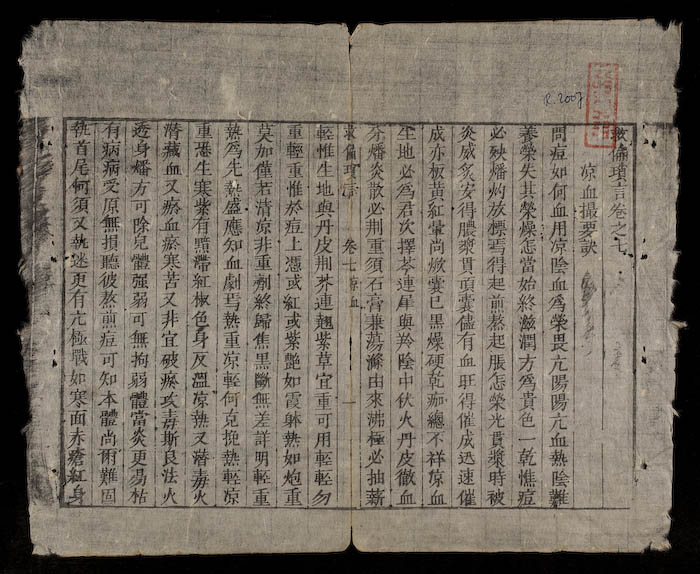 救偏瑣言卷之七
凉血撮要訣
問痘如何血用凉陰血為榮畏亢陽陽亢血熱陰難
養榮失其榮燥怎當始終滋潤方為貴色一乾憔痘
必殃燔灼放標焉得起煎熬起脹怎榮光貫漿時被
炎威炙安得膿漿貫頂囊儘有血旺得催成迅速催
成亦板黃紅暈尚嫩囊已黑燥硬乾痂總不祥凉血
生地必為君次擇芩連犀與羚陰中伏火丹皮徹血
分燔炎散必荆重須石膏兼蕩滌由來沸極必抽薪
救偏瑣言 卷七凉血 一
輕惟生地與丹皮荆芥連翹紫草宜重可用輕輕勿
重輕重惟於痘上憑或紅或紫艷如霞躰熱如炮重
莫加僅若清凉非重劑終歸焦黑斷無差詳明輕重
熱為先熱盛應知血劇焉熱重凉輕何克挽熱輕凉
重恐生寒紫有黯滯紅椒色身反溫凉熱又潛毒火
潛藏血又瘀血瘀寒苦又非宜破瘀攻毒斯良法火
透身燔方可除兒體强弱可無拘弱體當炎更易枯
有病病受原無損聽彼熬煎痘可知本體尚爾難固
執首尾何須又執迷更有亢極戰如寒面赤瘡紅身
R.2007